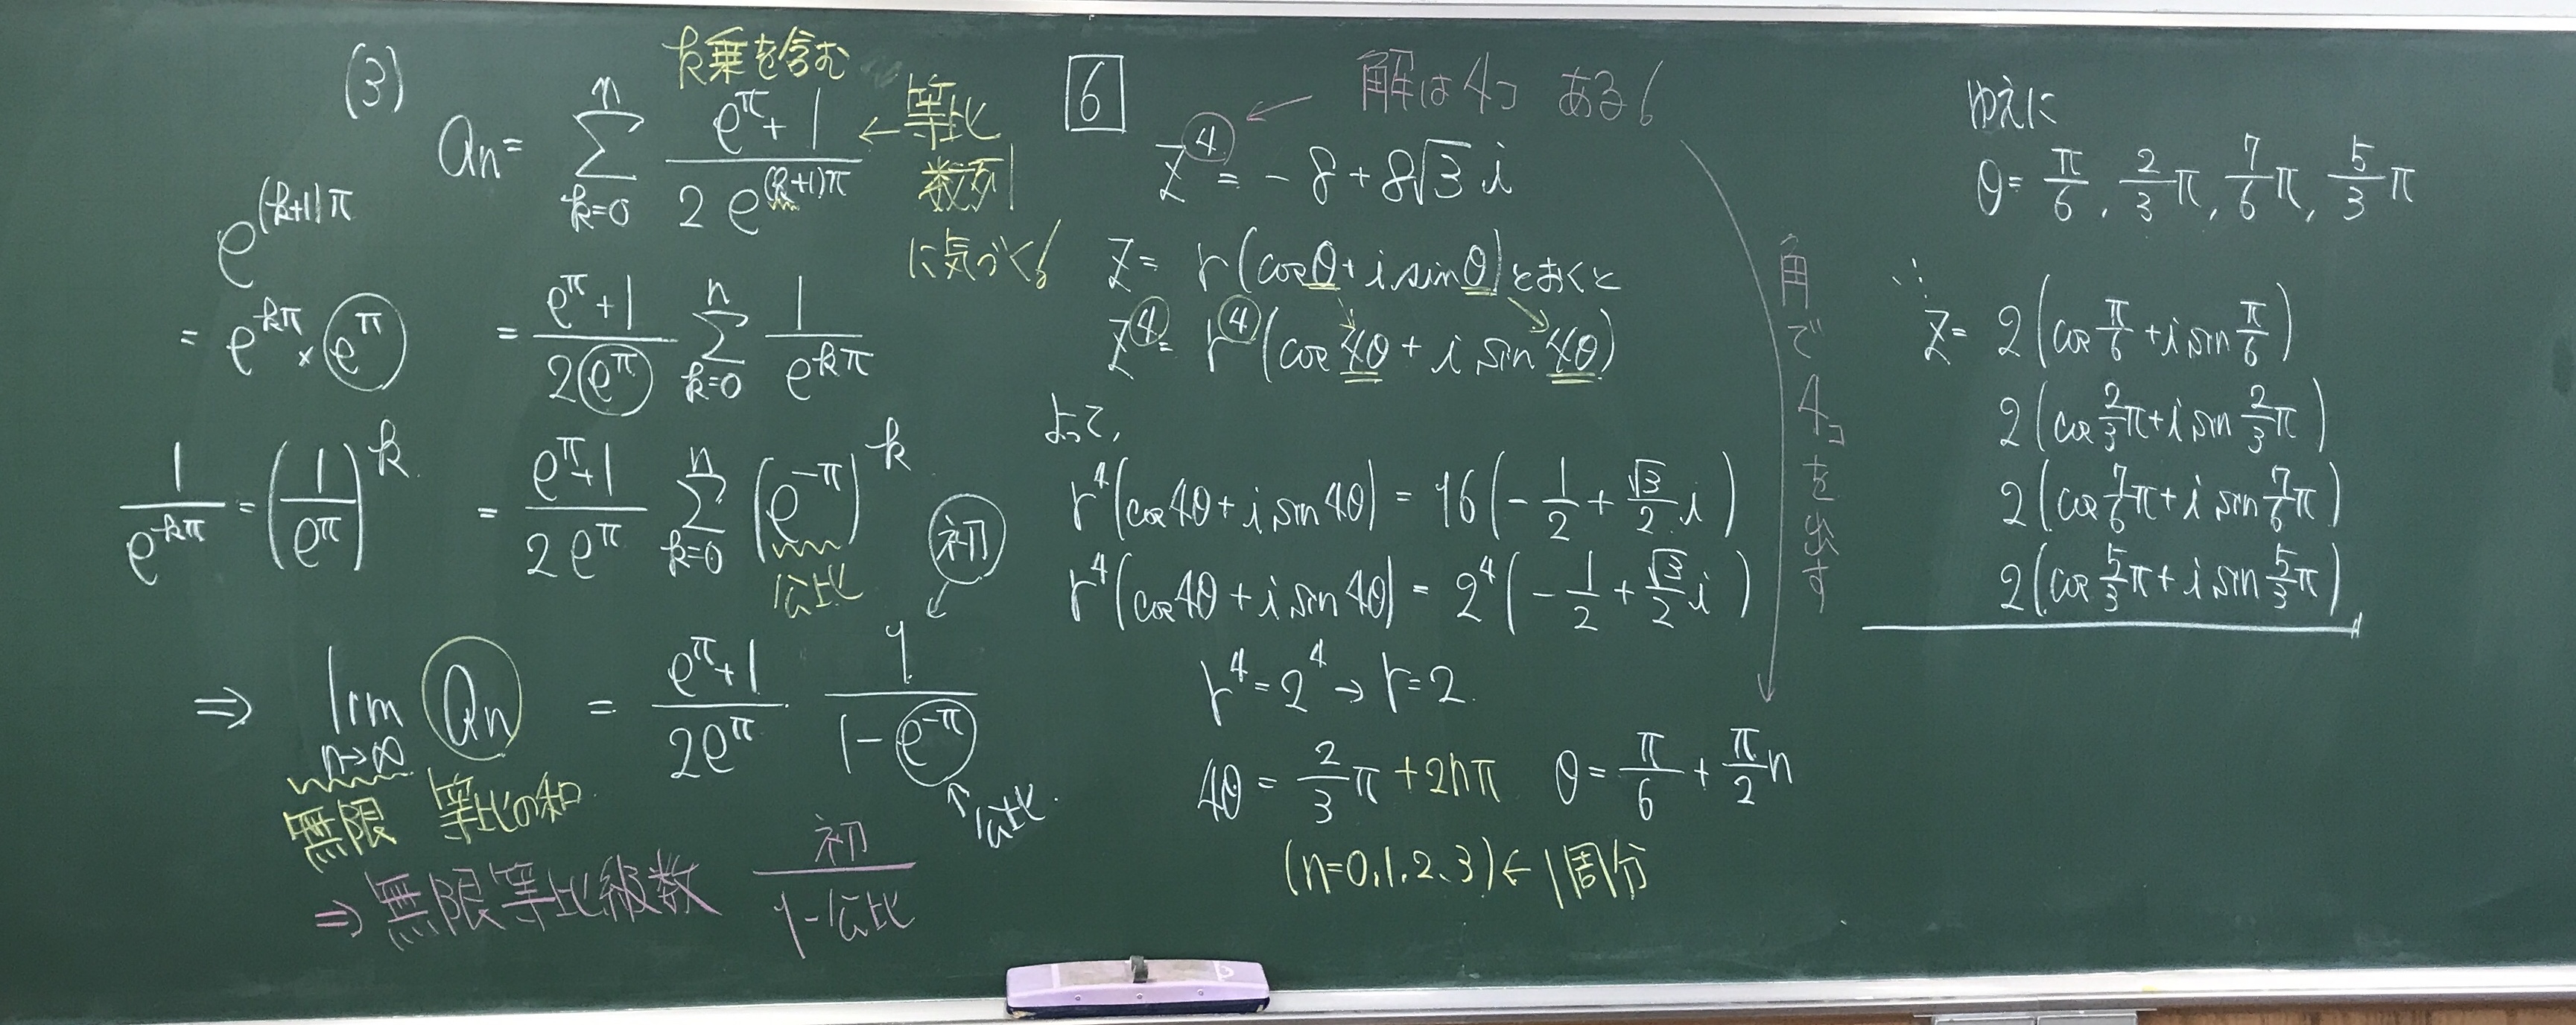 (3)
k乗を含む
aₙ = Σ_{k=0}^{n} (e^π + 1)/(2e^{(k+1)π}) ← 等比
数列
に気づく!
e^{(k+1)π}
= e^{kπ} × e^π
= (e^π + 1)/(2e^π) Σ_{k=0}^{n} 1/e^{kπ}
1/e^{kπ} = (1/e^π)^k
= (e^π + 1)/(2e^π) Σ_{k=0}^{n} (e^{-π})^k
公比
初
⇒ lim_{n→∞} aₙ = (e^π + 1)/(2e^π) · 1/(1 - e^{-π})
無限 等比の和
↑公比
⇒ 無限等比級数 初/(1-公比)
6
解は4コ ある!
z⁴ = -8 + 8√3 i
z = r(cosθ + i sinθ) とおくと
z⁴ = r⁴(cos4θ + i sin4θ)
よって,
r⁴(cos4θ + i sin4θ) = 16(-1/2 + √3/2 i)
r⁴(cos4θ + i sin4θ) = 2⁴(-1/2 + √3/2 i)
r⁴ = 2⁴ → r = 2
4θ = 2/3 π + 2nπ θ = π/6 + π/2 n
(n=0,1,2,3) ← 1周分
角で4コを出す
ゆえに
θ = π/6, 2/3 π, 7/6 π, 5/3 π
∴
z = 2(cos π/6 + i sin π/6)
2(cos 2/3 π + i sin 2/3 π)
2(cos 7/6 π + i sin 7/6 π)
2(cos 5/3 π + i sin 5/3 π)